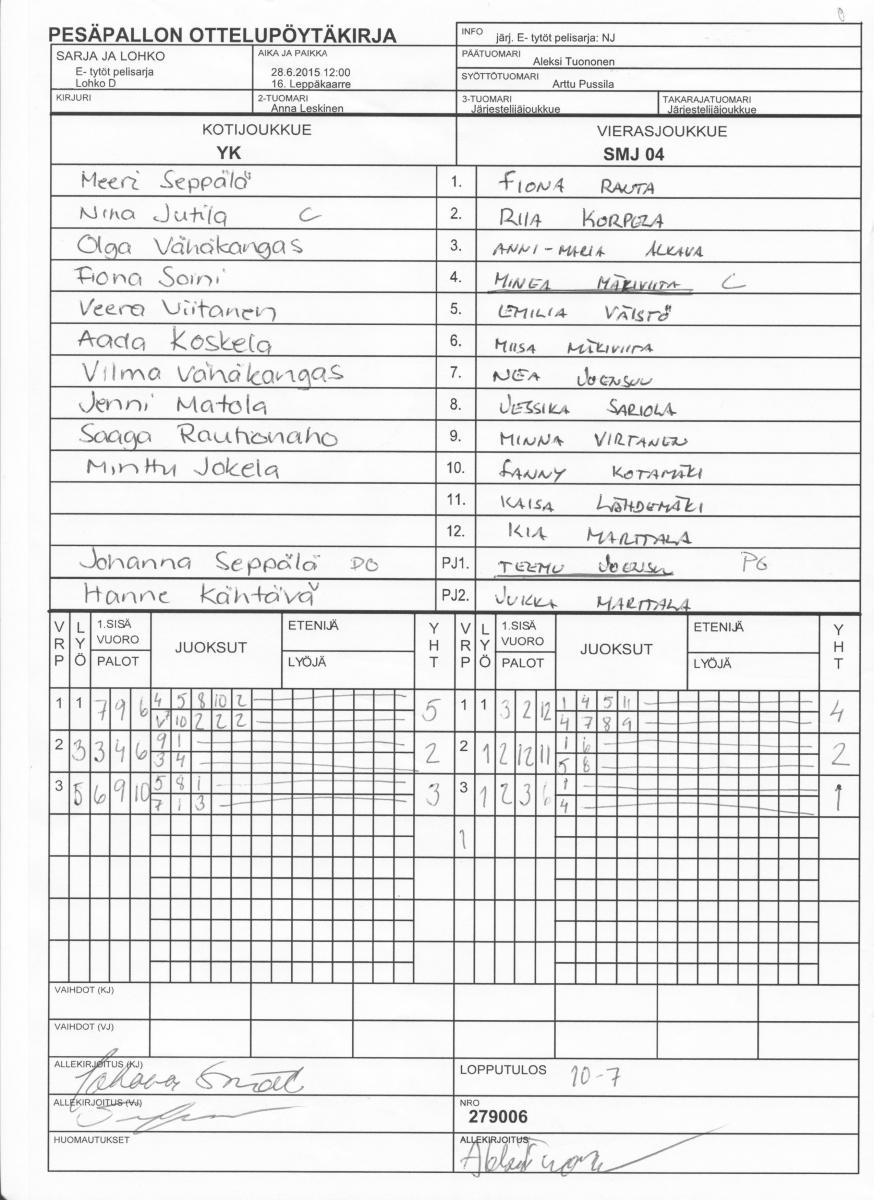 PESÄPALLON OTTELUPÖYTÄKIRJA
INFO järj. E- tytöt pelisarja: NJ
SARJA JA LOHKO
E- tytöt pelisarja
Lohko D
AIKA JA PAIKKA
28.6.2015 12:00
16. Leppäkaarre
PÄÄTUOMARI
Aleksi Tuononen
SYÖTTÖTUOMARI
Arttu Pussila
KIRJURI
2-TUOMARI
Anna Leskinen
3-TUOMARI
Järjestelijäjoukkue
TAKARAJATUOMARI
Järjestelijäjoukkue
KOTIJOUKKUE
YK
VIERASJOUKKUE
SMJ 04
Meeri Seppälä 1. FIONA RAUTA
Nina Jutila C 2. RIIA KORPELA
Olga Vähäkangas 3. ANNI-MARIA ALKAVA
Fiona Soini 4. MINEA MÄKIVIITA C
Veera Viitanen 5. EMILIA VÄISTÖ
Aada Koskela 6. MIISA MÄKIVIITA
Vilma Vähäkangas 7. NEA JOENSUU
Jenni Matola 8. JESSIKA SARIOLA
Saaga Rauhonaho 9. MINNA VIRTANEN
Minttu Jokela 10. FANNY KOTAMÄKI
11. KAISA LÄHDEMÄKI
12. KIA MARTTALA
Johanna Seppälä PJ1. TEEMU JOENSUU PG
Hanne Kähtävä PJ2. JUKKA MARTTALA
VRP LYÖ 1.SISÄ VUORO PALOT JUOKSUT ETENIJÄ LYÖJÄ YHT VRP LYÖ 1.SISÄ VUORO PALOT JUOKSUT ETENIJÄ LYÖJÄ YHT
1 1 7 9 6 4 5 8 10 2 5 1 1 3 2 12 1 4 5 11 4
V 10 2 2 2 4 7 8 9
2 3 3 4 6 9 1 2 2 1 2 12 11 1 6 2
3 4 5 8
3 5 6 9 10 5 8 1 3 3 1 2 3 6 1 1
7 1 3 4
1
VAIHDOT (KJ)
VAIHDOT (VJ)
ALLEKIRJOITUS (KJ)
LOPPUTULOS 10-7
ALLEKIRJOITUS (VJ)
NRO
279006
HUOMAUTUKSET
ALLEKIRJOITUS